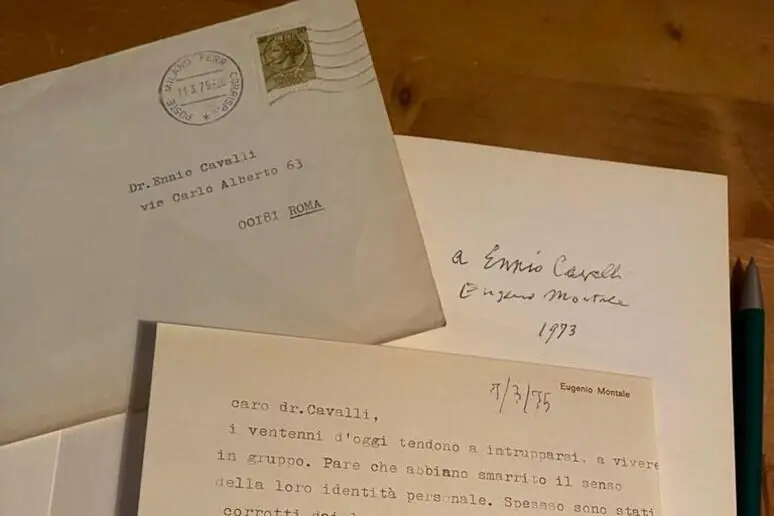 POSTE MILANO FERR. CORRISP.
11.3.75
Dr.Ennio Cavalli
via Carlo Alberto 63
00181 ROMA
a Ennio Cavalli
Eugenio Montale
1973
Eugenio Montale
7/3/75
caro dr.Cavalli,
i ventenni d'oggi tendono a intrupparsi, a vivere
in gruppo. Pare che abbiano smarrito il senso
della loro identità personale. Spessso sono stati
corrotti